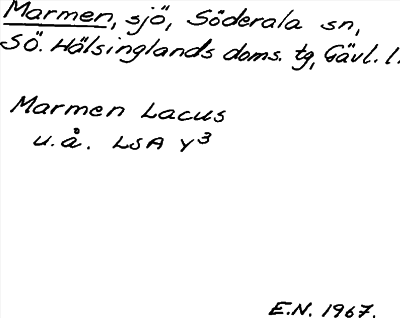 Marmen, sjö, Söderala sn,
Sö. Hälsinglands doms. tg, Gävl. l.
Marmen Lacus
u.å. LSA Y3
E.N. 1967.